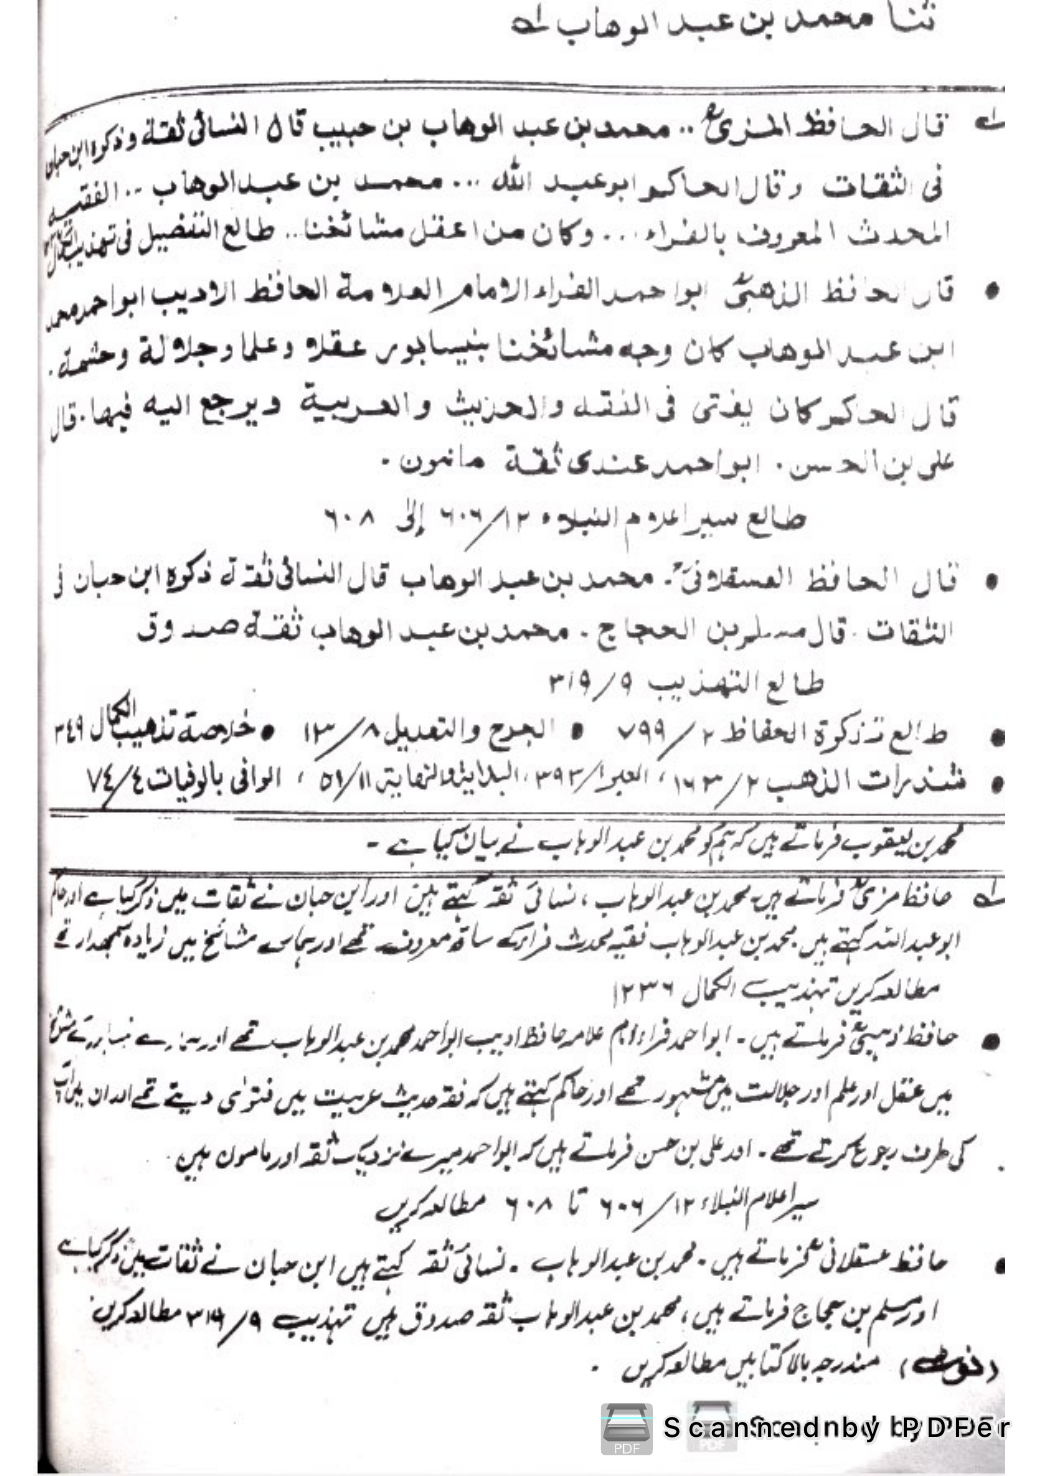 ثنا محمد بن عبد الوهاب لـه
لـه قال الحافظ المزیؒ .. محمد بن عبد الوهاب بن حبیب قال النسائی ثقة وذکره ابن حبان
فی الثقات وقال الحاکم ابو عبد الله ... محمد بن عبد الوهاب .. الفقیه
المحدث المعروف بالفراء ... وکان من اعقل مشائخنا .. طالع التفضیل فی تهذیب الکمال
• قال الحافظ الذهبیؒ ابو احمد الفراء الامام العلامة الحافظ الادیب ابو احمد محمد
ابن عبد الوهاب کان وجه مشائخنا بنیسابور عقلا وعلما وجلالة وحشمة .
قال الحاکم کان یفتی فی الفقه والحدیث والعربیة ویرجع الیه فیها . قال
علی بن الحسن . ابو احمد عندی ثقة مامون .
طالع سیر اعلام النبلاء ۱۲/۶۰۶ إلی ۶۰۸
• قال الحافظ العسقلانیؒ . محمد بن عبد الوهاب قال النسائی ثقة ذکره ابن حبان فی
الثقات . قال مسلم بن الحجاج . محمد بن عبد الوهاب ثقة صدوق
طالع التهذیب ۹/۳۱۹
• طالع تذکرة الحفاظ ۲/۷۹۹ • الجرح والتعدیل ۸/۱۳ • خلاصة تذهیب الکمال ۳۴۹
• شذرات الذهب ۲/۱۶۳ ، العبر ۱/۳۹۳ ، البدایة والنهایة ۱۱/۵۱ ، الوافی بالوفیات ۴/۷۴
محمد بن یعقوب فرماتے ہیں کہ ہم کو محمد بن عبد الوہاب نے بیان کیا ہے ۔
لـه حافظ مزیؒ فرماتے ہیں محمد بن عبد الوہاب ، نسائی ثقہ کہتے ہیں اور ابن حبان نے ثقات میں ذکر کیا ہے اور حاکم
ابو عبد اللہ کہتے ہیں محمد بن عبد الوہاب فقیہ محدث فراء کے ساتھ معروف تھے اور ہمارے مشائخ میں زیادہ سمجھدار تھے
مطالعہ کریں تہذیب الکمال ۱۲۳۶
• حافظ ذہبیؒ فرماتے ہیں ۔ ابو احمد فراء امام علامہ حافظ ادیب ابو احمد محمد بن عبد الوہاب تھے اور ہمارے نیسابور کے شیوخ
میں عقل اور علم اور جلالت میں مشہور تھے اور حاکم کہتے ہیں کہ فقہ حدیث عربیت میں فتویٰ دیتے تھے اور ان میں آپ
کی طرف رجوع کرتے تھے ۔ اور علی بن حسن فرماتے ہیں کہ ابو احمد میرے نزدیک ثقہ اور مامون ہیں .
سیر اعلام النبلاء ۱۲/۶۰۶ تا ۶۰۸ مطالعہ کریں
• حافظ عسقلانیؒ فرماتے ہیں ۔ محمد بن عبد الوہاب ۔ نسائی ثقہ کہتے ہیں ابن حبان نے ثقات میں ذکر کیا ہے
اور مسلم بن حجاج فرماتے ہیں ، محمد بن عبد الوہاب ثقہ صدوق ہیں تہذیب ۹/۳۱۹ مطالعہ کریں
(نوٹ) مندرجہ بالا کتابیں مطالعہ کریں ۔
PDF Scanned by PDFer